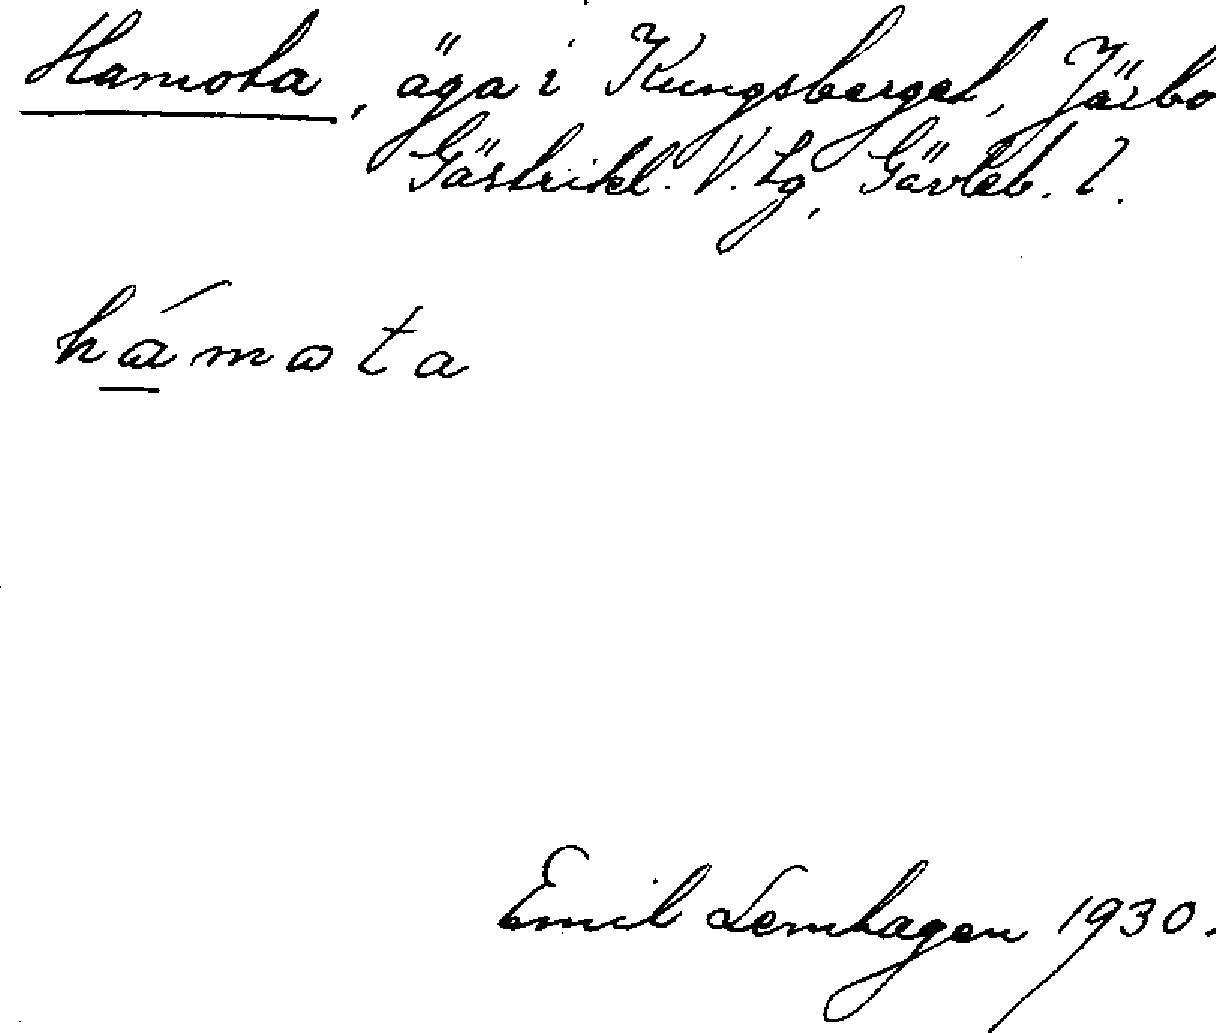 Hamota, äga i Kungsberget, Järbo
Gästrikl. V. Lg, Gävleb. l.
hámota
Emil Lemhagen 1930.